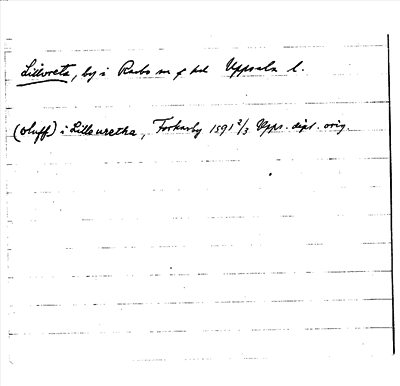 Lillvreta, by i Rasbo sn o. hd Uppsala l.
(Oluff) i Lilleuretha, Forkarby 1591 2/3 Upps. dipl. orig.